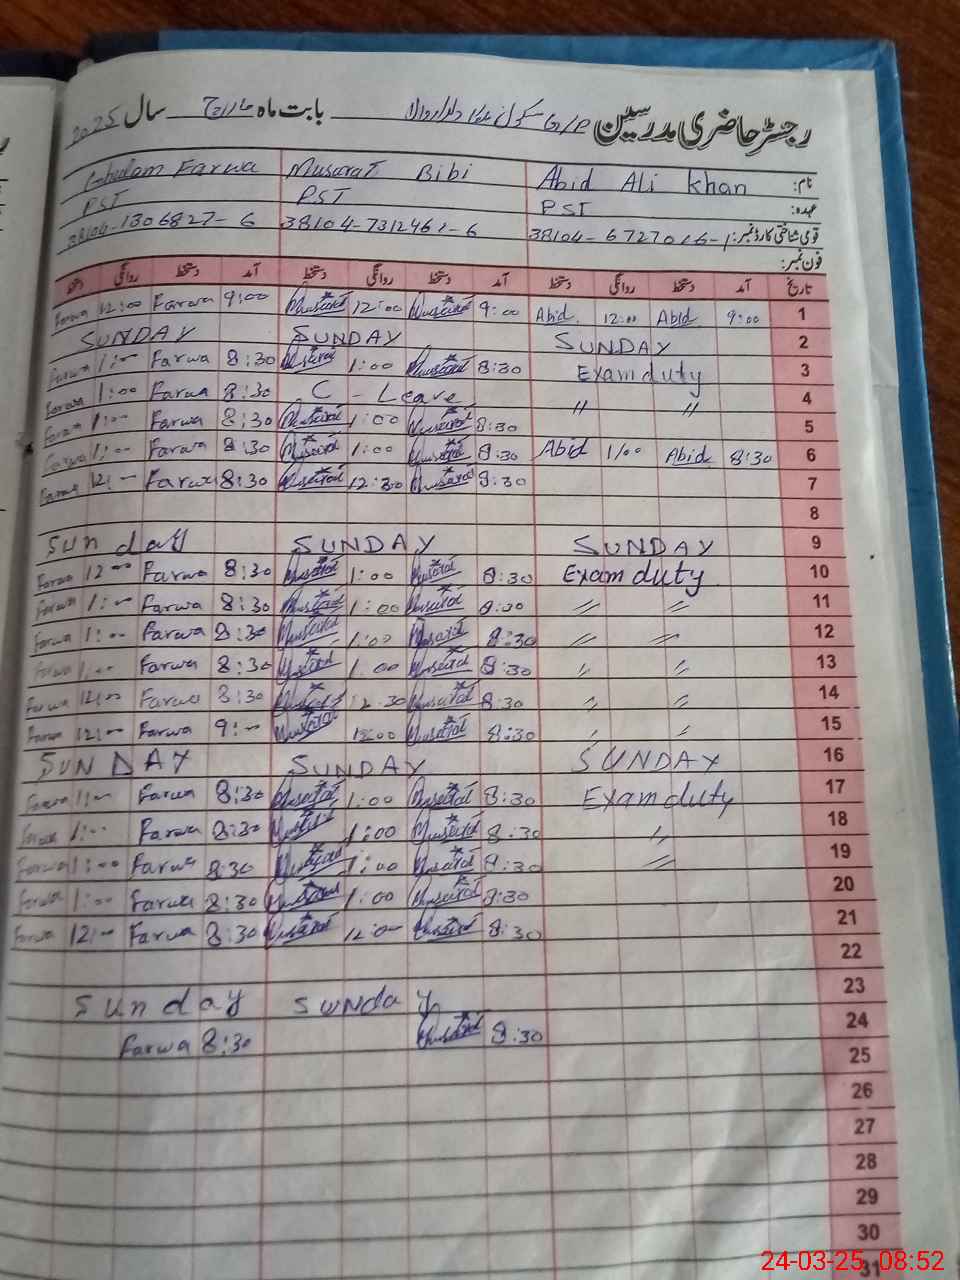 رجسٹر حاضری مدرسین بابت ماہ مارچ سال 2025
نام: Abid Ali Khan Musarat Bibi Ghulam Farwa
عہدہ: PST PST PST
قومی شناختی کارڈ نمبر: 38104-6727016-1 38104-7312461-6 38104-1306827-6
فون نمبر:
تاریخ آمد دستخط روانگی دستخط آمد دستخط روانگی دستخط آمد دستخط روانگی دستخط
Farwa 12:00 Farwa 9:00 Musarat 12:00 Musarat 9:00 Abid 12:00 Abid 9:00 1
SUNDAY SUNDAY SUNDAY 2
Farwa 1:00 Farwa 8:30 Musarat 1:00 Musarat 8:30 Exam duty 3
Farwa 1:00 Farwa 8:30 C - Leave " " 4
Farwa 1:00 Farwa 8:30 Musarat 1:00 Musarat 8:30 5
Farwa 1:00 Farwa 8:30 Musarat 1:00 Musarat 8:30 Abid 1/00 Abid 8:30 6
Farwa 12:- Farwa 8:30 Musarat 12:30 Musarat 8:30 7
8
Sunday SUNDAY SUNDAY 9
Farwa 12:00 Farwa 8:30 Musarat 1:00 Musarat 8:30 Exam duty 10
Farwa 1:00 Farwa 8:30 Musarat 1:00 Musarat 8:30 " " 11
Farwa 1:00 Farwa 8:30 Musarat 1:00 Musarat 8:30 " " 12
Farwa 1:00 Farwa 8:30 Musarat 1:00 Musarat 8:30 " " 13
Farwa 12:00 Farwa 8:30 Musarat 12:30 Musarat 8:30 " " 14
Farwa 12:00 Farwa 9:00 Musarat 12:00 Musarat 8:30 " " 15
SUNDAY SUNDAY SUNDAY 16
Farwa 1:00 Farwa 8:30 Musarat 1:00 Musarat 8:30 Exam duty 17
Farwa 1:00 Farwa 8:30 Musarat 1:00 Musarat 8:30 " 18
Farwa 1:00 Farwa 8:30 Musarat 1:00 Musarat 8:30 " 19
Farwa 1:00 Farwa 8:30 Musarat 1:00 Musarat 8:30 20
Farwa 12:00 Farwa 8:30 Musarat 12:00 Musarat 8:30 21
22
Sunday SUNday 23
Farwa 8:30 Musarat 8:30 24
25
26
27
28
29
30
31
24-03-25 08:52